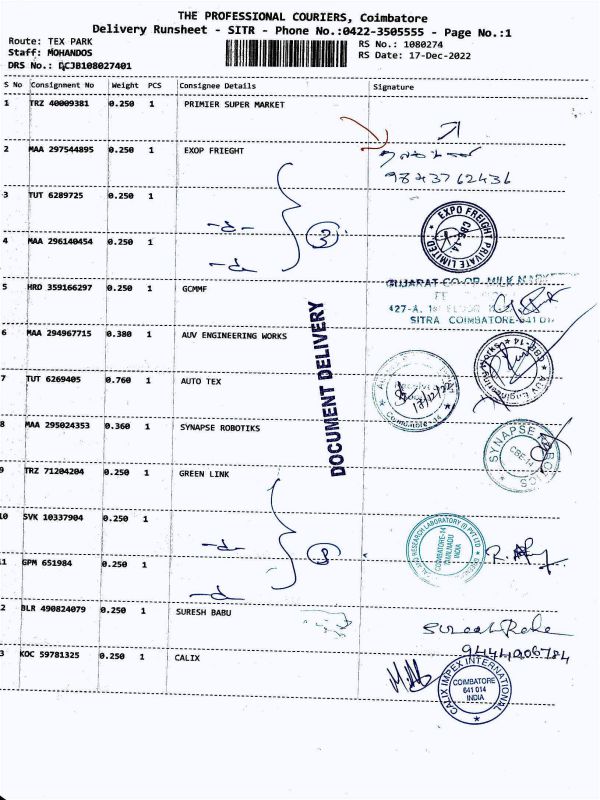 THE PROFESSIONAL COURIERS, Coimbatore
Delivery Runsheet - SITR - Phone No.:0422-3505555 - Page No.:1
Route: TEX PARK
RS No.: 1080274
Staff: MOHANDOS
RS Date: 17-Dec-2022
DRS No.: DCJB108027401
S No Consignment No Weight PCS Consignee Details Signature
1 TRZ 40009381 0.250 1 PRIMIER SUPER MARKET
2 MAA 297544895 0.250 1 EXOP FRIEGHT
9843762436
3 TUT 6289725 0.250 1
-d-
3
EXPO FREIGHT PRIVATE LIMITED
CBE-14
4 MAA 296140454 0.250 1
-d-
5 HRD 359166297 0.250 1 GCMMF
GUJARAT CO-OP MILK
427-A,
SITRA COIMBATORE-641 014
DOCUMENT DELIVERY
6 MAA 294967715 0.380 1 AUV ENGINEERING WORKS
AUV Engineering Works
CBE-14
7 TUT 6269405 0.760 1 AUTO TEX
17/12/22
Coimbatore-14
8 MAA 295024353 0.360 1 SYNAPSE ROBOTIKS
SYNAPSE ROBOTICS
CBE-14
9 TRZ 71204204 0.250 1 GREEN LINK
10 SVK 10337904 0.250 1
-d-
3
RESEARCH LABORATORY (I) PVT LTD
COIMBATORE-14
TAMILNADU
INDIA
11 GPM 651984 0.250 1
-d-
2 BLR 490824079 0.250 1 SURESH BABU
9444006784
3 KOC 59781325 0.250 1 CALIX
CALIX IMPEX INTERNATIONAL
COIMBATORE
641 014
INDIA